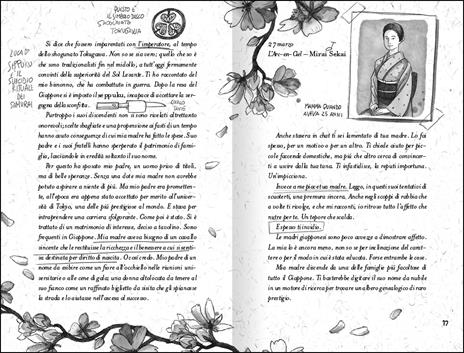 QUESTO È
IL SIMBOLO DELLO
SHOGUNATO
TOKUGAWA
Si dice che fossero imparentati con l'imperatore, al tempo
dello shogunato Tokugawa. Non so se sia vero: quello che so è
che sono tradizionalisti fin nel midollo, a tutt'oggi fermamente
convinti della superiorità del Sol Levante. Ti ho raccontato del
mio bisnonno, che ha combattuto in guerra. Dopo la resa del
Giappone si è imposto il seppuku, incapace di accettare la ver-
gogna della sconfitta.
SEPPUKU
IL
SUICIDIO
RITUALE
DEI
SAMURAI
Purtroppo i suoi discendenti non si sono rivelati altrettanto
onorevoli; scelte sbagliate e una propensione ai fasti di un tempo
hanno avuto conseguenze di cui mia madre ha fatto le spese. Suo
padre e i suoi fratelli hanno sperperato il patrimonio di famiglia,
lasciandole in eredità soltanto il suo nome.
Per questo ha sposato mio padre, un uomo privo di titoli,
ma di belle speranze. Senza una dote mia madre non avrebbe
potuto aspirare a niente di più. Ma mio padre era promettente,
all'epoca era appena stato accettato per merito all'università
di Tokyo, una delle più prestigiose al mondo. E stava per
intraprendere una carriera sfolgorante. Come poi è stato. Si è
trattato di un matrimonio di interesse, deciso a tavolino. Sono
frequenti in Giappone. Mia madre aveva bisogno di un cavallo
vincente che le restituisse la ricchezza e il benessere a cui si senti-
va destinata per diritto di nascita. O così credo. Mio padre di un
nome da esibire come un fiore all'occhiello nelle riunioni uni-
versitarie e alle cene di gala; una donna altolocata da tenere al
suo fianco come un raffinato biglietto da visita che gli spianasse
la strada e lo aiutasse nell'ascesa al successo.
27 marzo
L'Arc-en-Ciel – Mirai Sekai
MAMMA QUANDO
AVEVA 25 ANNI
Anche stasera in chat ti sei lamentato di tua madre. Lo fai
spesso, per un motivo o per un altro. Ti chiede aiuto per pic-
cole faccende domestiche, ma più che altro cerca di convincer-
ti a uscire dalla tua tana. Ti infastidisce, la reputi importuna.
Un'impicciona.
Invece a me piace tua madre. Leggo, in questi suoi tentativi di
scuoterti, una premura sincera. Anche negli scoppi di rabbia che
a volte ti rivolge, e che mi racconti, io ritrovo tutto l'affetto che
nutre per te. Un tepore che scalda.
E spesso ti invidio.
Le madri giapponesi sono poco avvezze a dimostrare affetto.
La mia lo è ancora meno, non so se per inclinazione del carat-
tere o per il modo in cui è stata educata. Forse entrambe le cose.
Mia madre discende da una delle famiglie più facoltose di
tutto il Giappone. Ti basterebbe digitare il suo nome da nubile
in un motore di ricerca per trovare un albero genealogico di raro
prestigio.
77